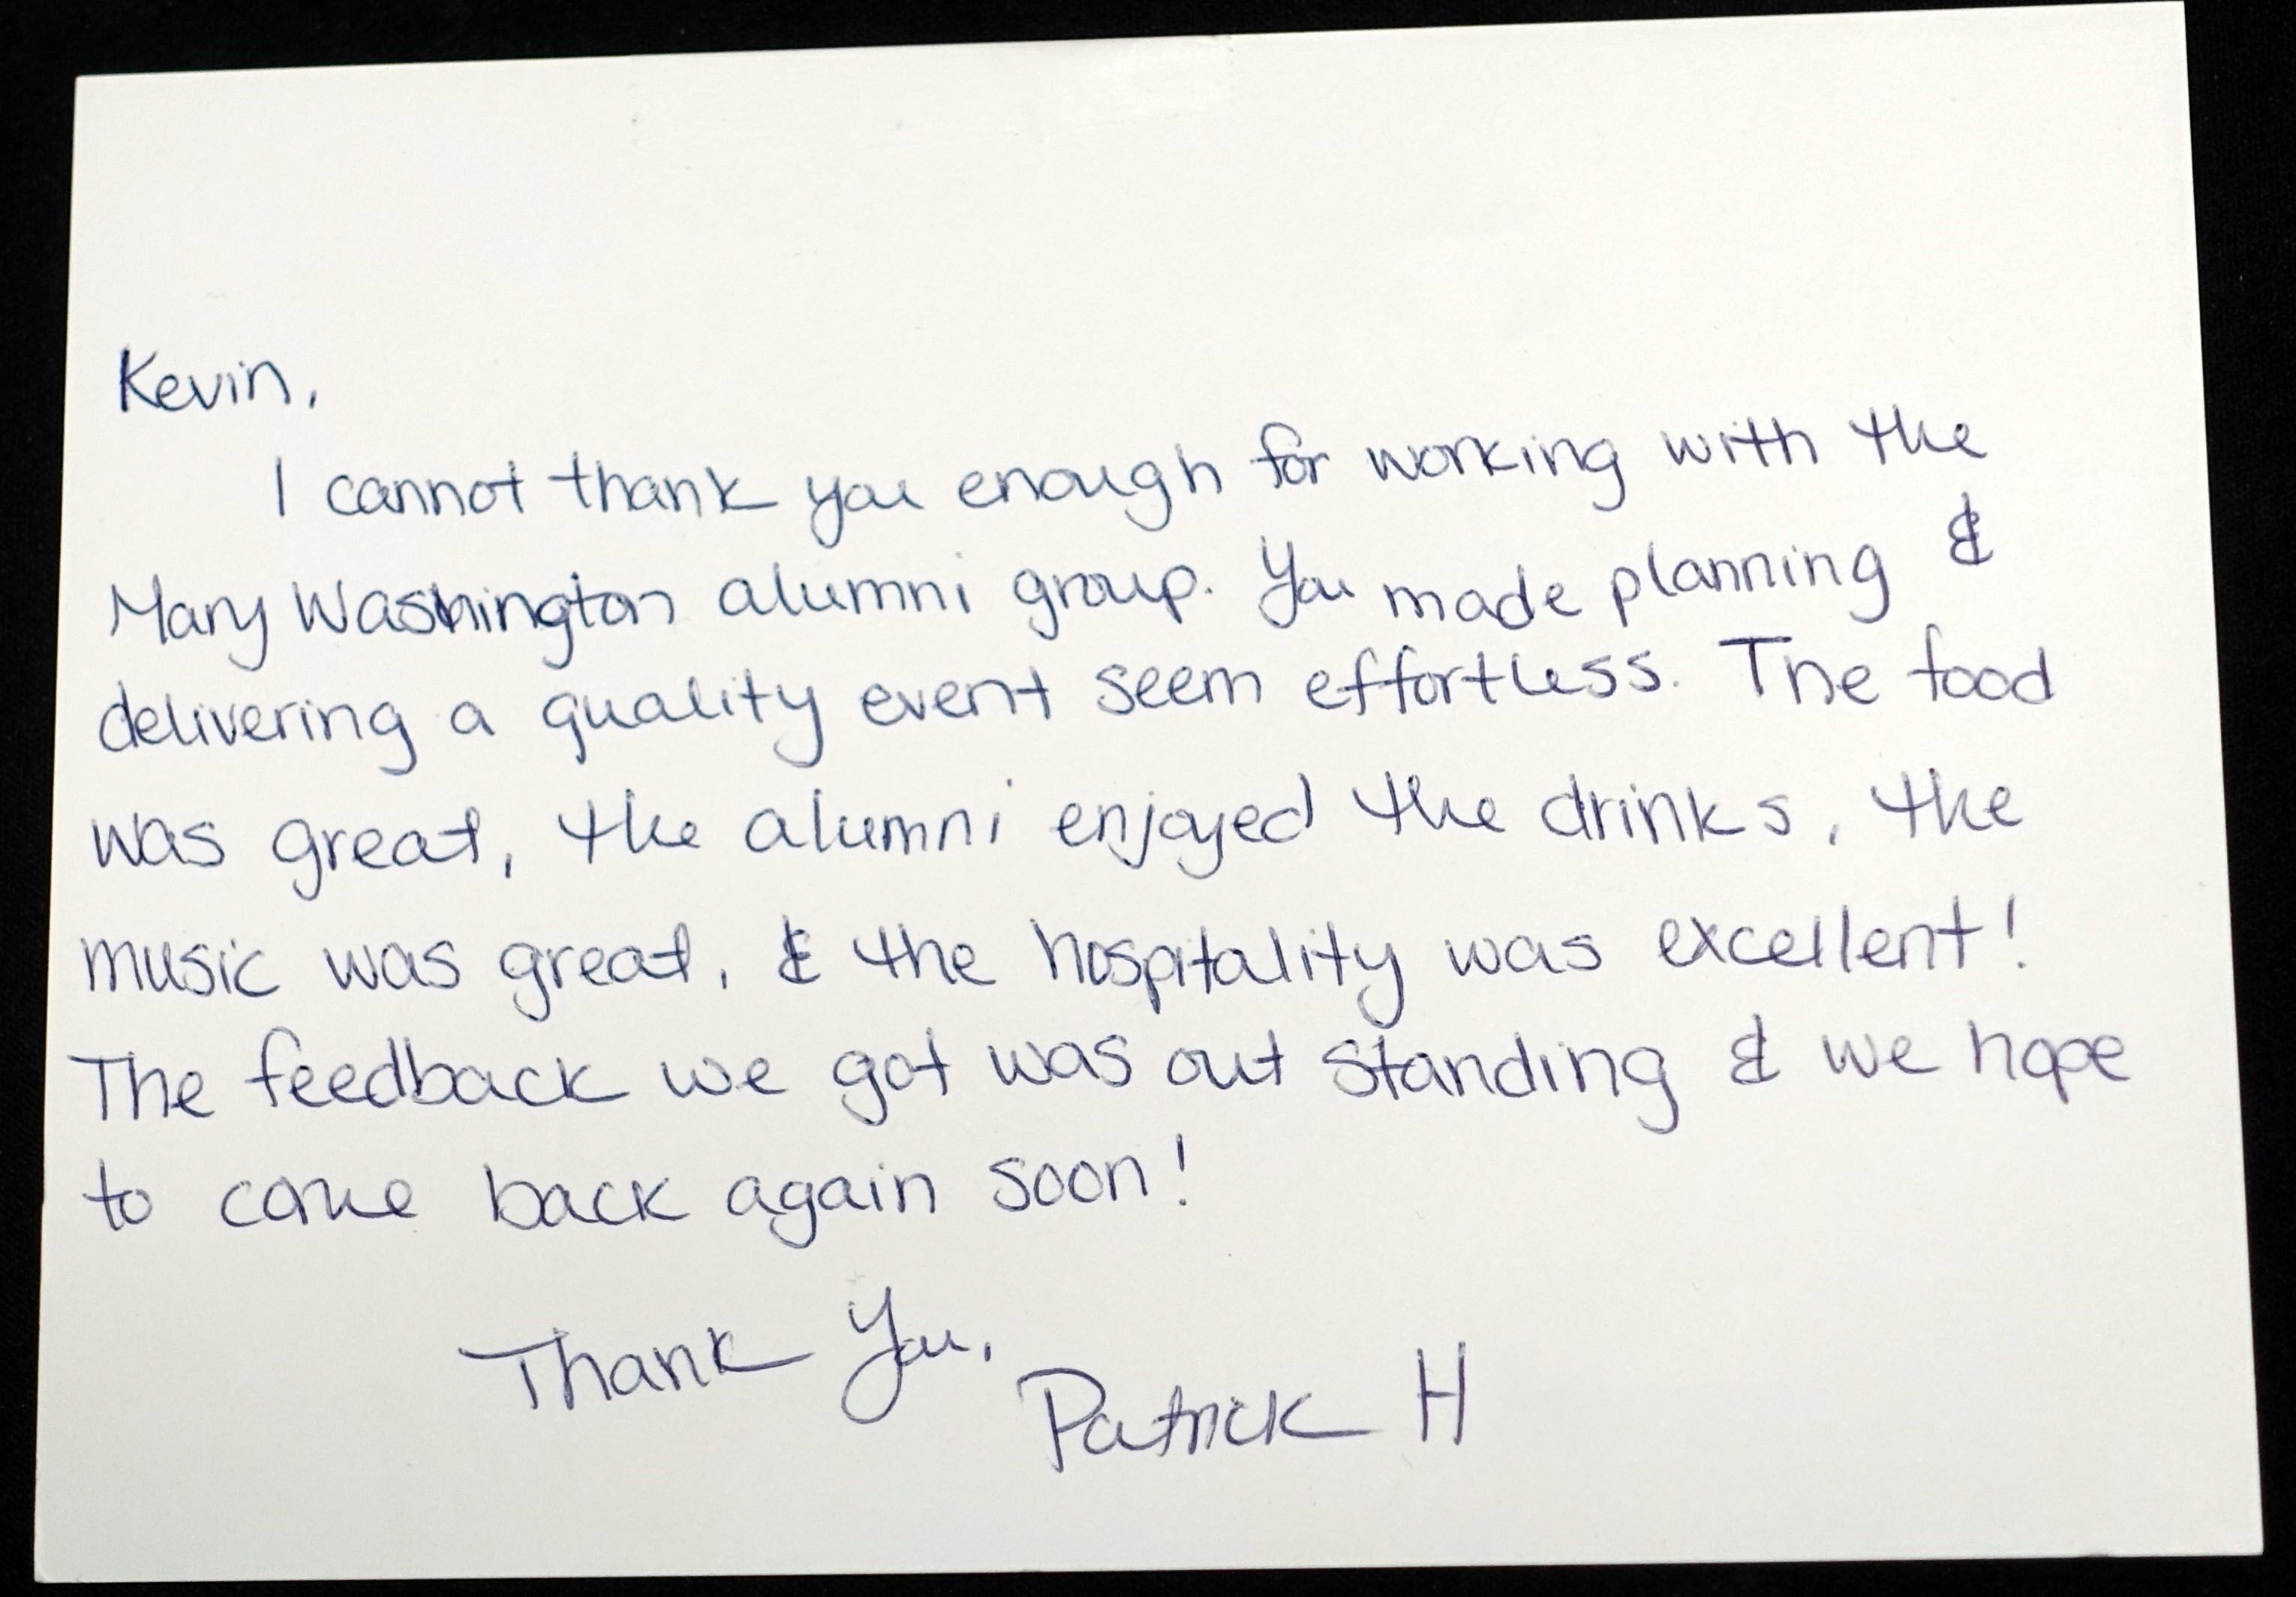 Kevin,
I cannot thank you enough for working with the
Mary Washington alumni group. You made planning &
delivering a quality event seem effortless. The food
was great, the alumni enjoyed the drinks, the
music was great, & the hospitality was excellent!
The feedback we got was out standing & we hope
to come back again soon!
Thank You,
Patrick H